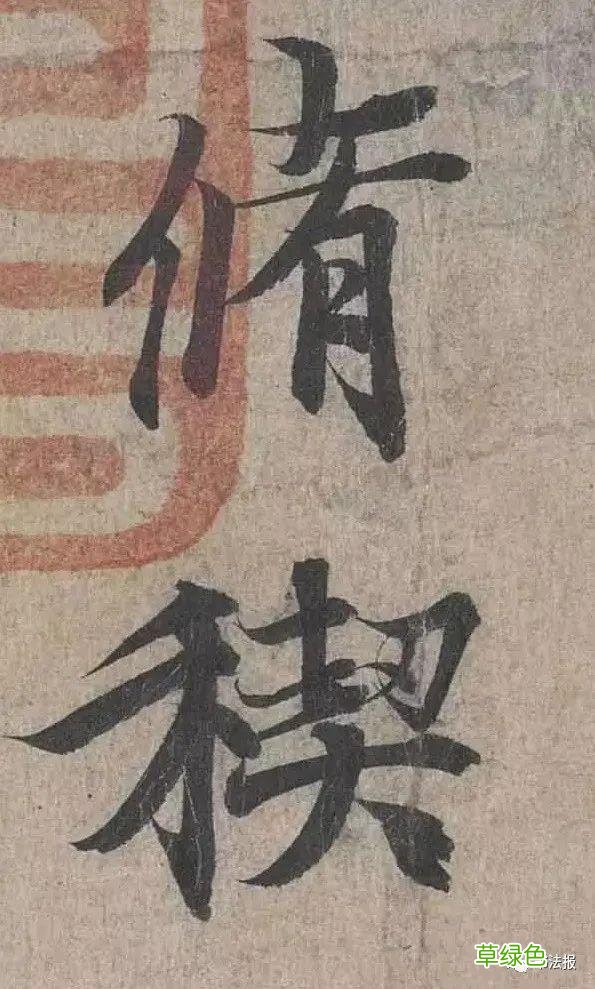 脩
稧
草绿色
法报